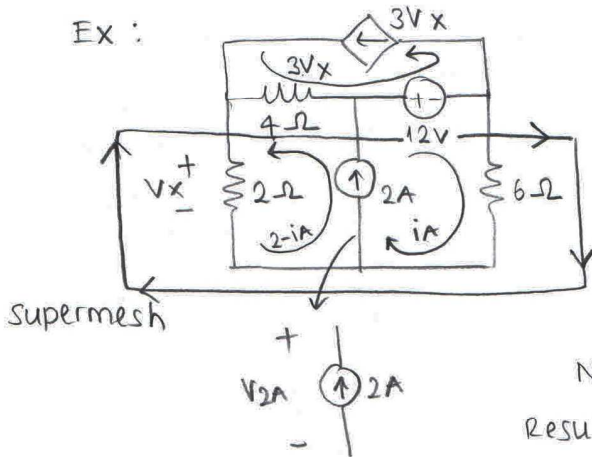 Ex :
3Vx
3Vx
4Ω
+ -
12V
Vx + -
2Ω
2A
6Ω
2-iA
iA
supermesh
+
V2A
2A
-
N
Resu